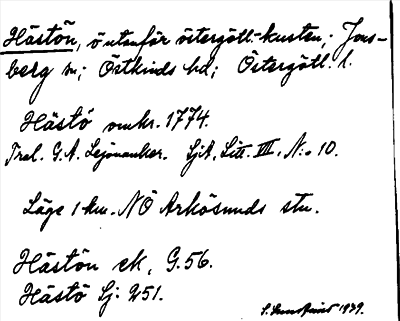 Hästön, ö utanför östergötl.-kusten; Jons-
berg sn; Östkinds hd; Östergötl. l.
Hästö omkr. 1774.
Trol. G. A. Lejonancker. SjA, Litt. III, N:o 10.
Läge 1 km. NÖ Arkösunds stn.
Hästön ek, G.56.
Hästö Sj: 251.
1939.